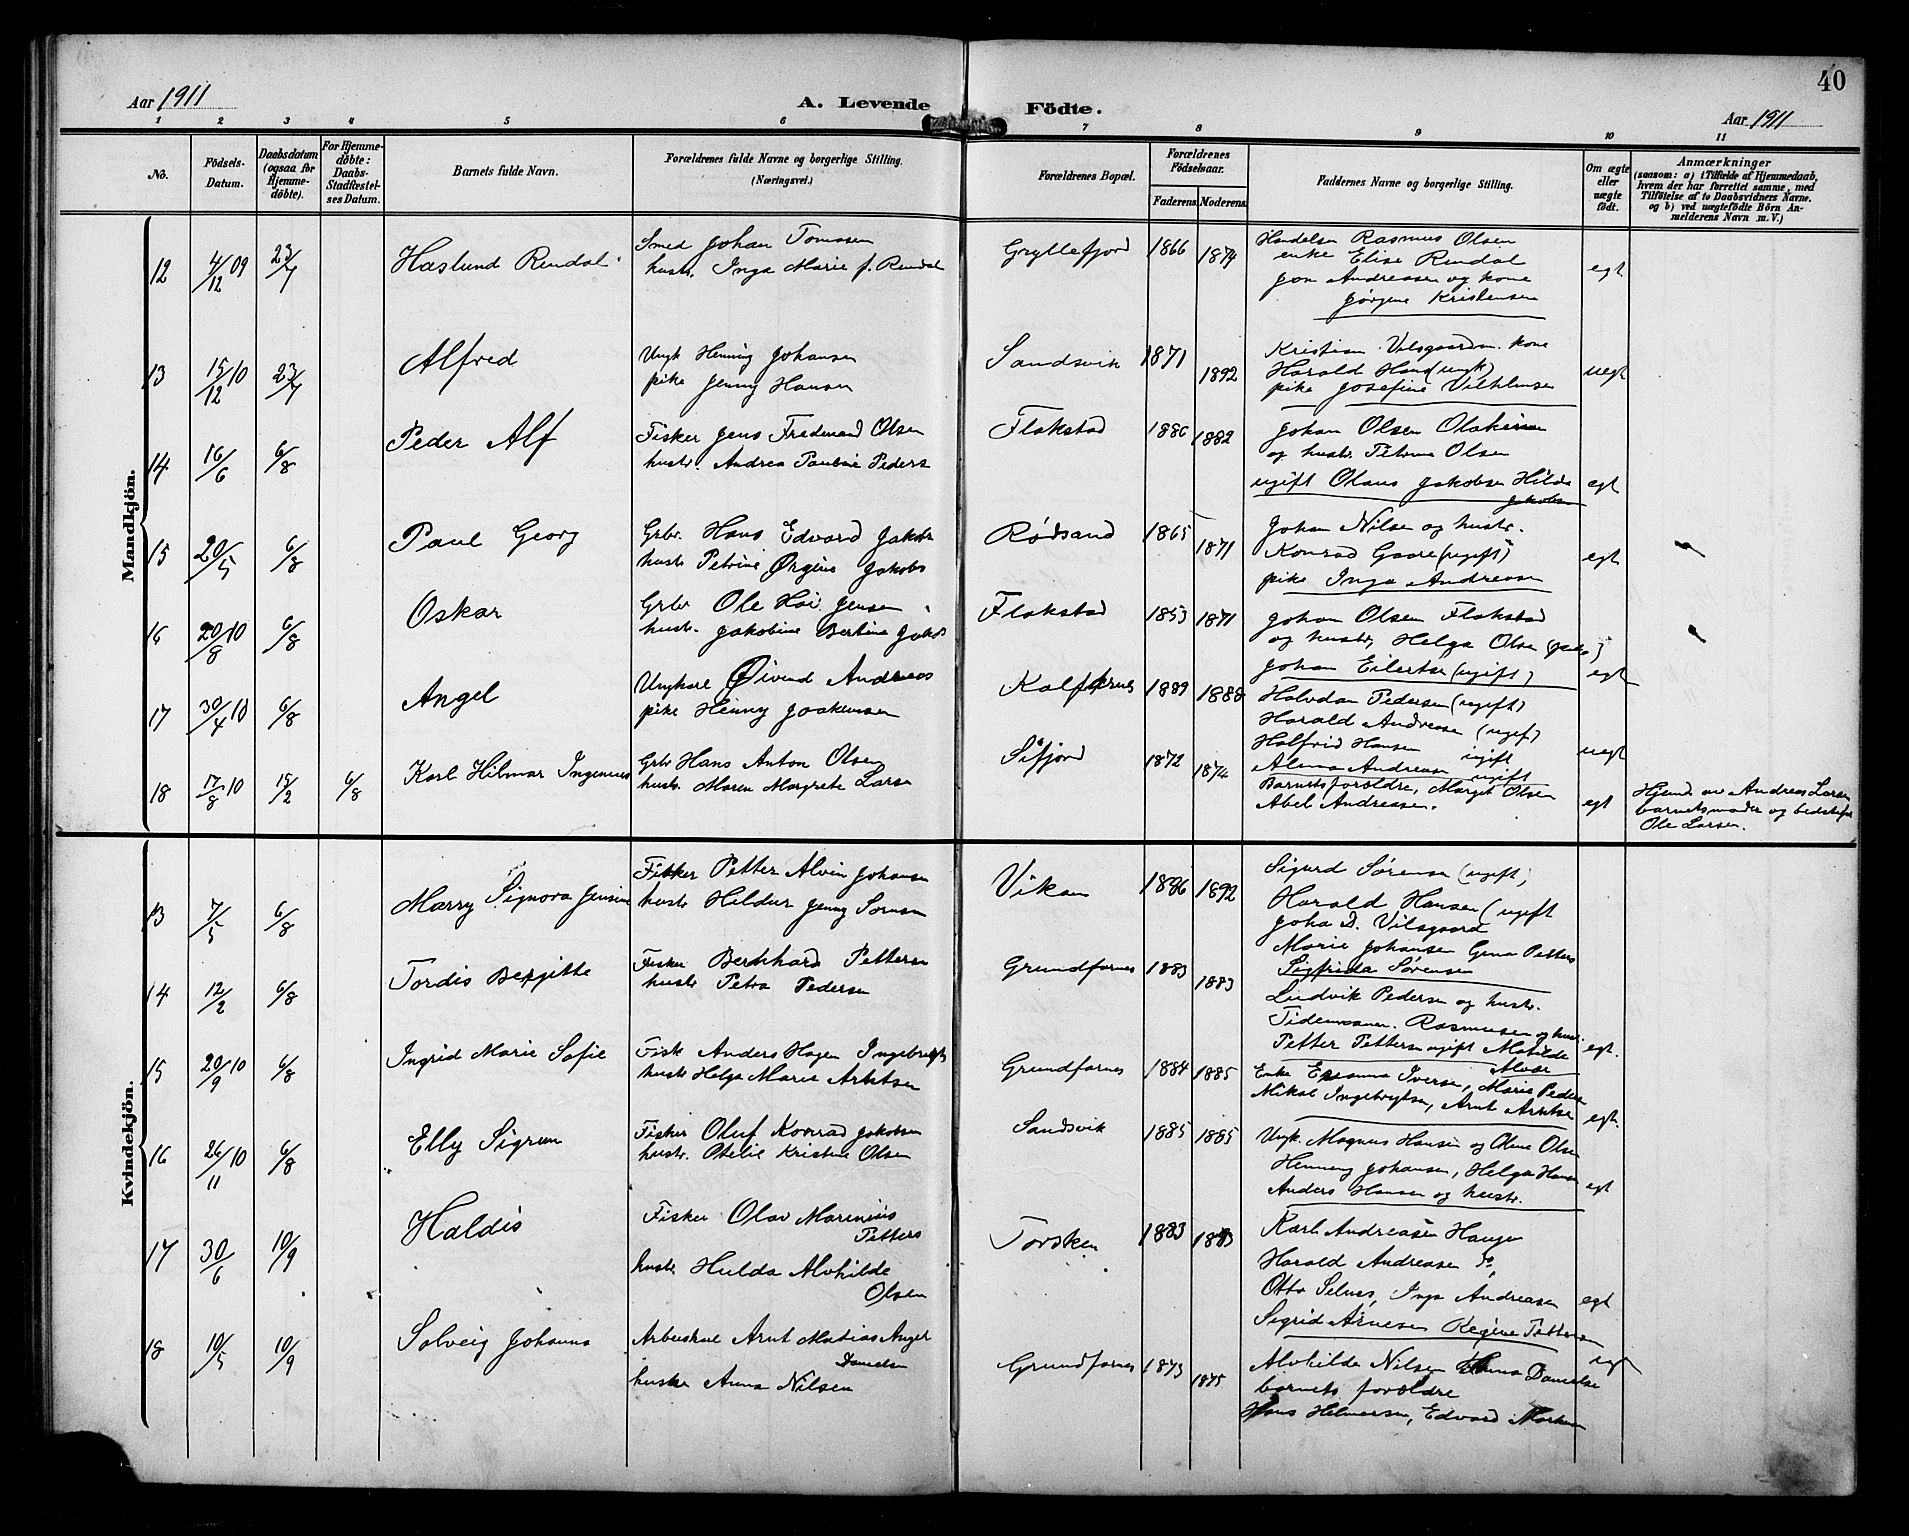 40
Aar 1911
A. Levende Födte.
Aar 1911
1 2 3 4 5 6 7 8 9 10 11
No.
Födsels-
Datum.
Daabsdatum
(ogsaa for
Hjemme-
döbte).
For Hjemme-
döbte:
Daabs-
Stadfæstel-
ses Datum.
Barnets fulde Navn.
Forældrenes fulde Navne og borgerlige Stilling.
(Næringsvei.)
Forældrenes Bopæl.
Forældrenes
Födselsaar.
Faderens. Moderens.
Faddernes Navne og borgerlige Stilling.
Om ægte
eller
uægte
födt.
Anmærkninger
(saasom: a) i Tilfælde af Hjemmedaab,
hvem der har forrettet samme, med
Tilföielse af to Daabsvidners Navne.
og b) ved uægtefödte Börn An-
melderens Navn m. V.)
Mandkjön.
12 4/12 09 23/7 Haslund Rendal
Smed Johan Tomasen
hustr. Inga Marie f. Rendal
Gryllefjord 1866 1874
Handelsm Rasmus Olsen
enke Elise Rendal
Jon Andreassen og kone
Jørgine Kristensen
egt
13 15/12 10 23/7 Alfred
Ungk Henning Johansen
pike Jenny Hansen
Sandsvik 1871 1892
Kristian Vilsgaard m. kone
Harald Hans (ungk)
pike Josefine
uegt
14 16/6 6/8 Peder Alf
Fisker Jens Fredenand Olsen
hustr. Andrea Pauline Peders
Flakstad 1886 1882
Johan Olsen
og hustr Petrine Olsen
ugift Olaus Jakobsen Hilda
Jakobsen
egt
15 20/5 6/8 Paul Georg
Grbr. Hans Edvard Jakobs
hustr Petrine Ørgine Jakobs
Rødsand 1865 1871
Johan Nilsen og hustr.
Konrad Gaare (ugift)
pike Inga Andreasen
egt
16 20/8 10 6/8 Oskar
Grbr Ole Hai Jensen
hustr. Jakobine Bertine Jakobs
Flakstad 1853 1871
Johan Olsen Flakstad
og hustr, Helga Olsen (pike)
Johan Eilertsen (ugift)
egt
17 30/4 10 6/8 Angel
Ungkare Øivind Andreas
pike Henny Joakimsen
Kalfarnes 1889 1888
Halvdan Pedersen (ugift)
Harald Andreasen (ugif)
Halfrid Hansen ugift
Alma Andreasen ugift
uegt
18 17/8 10 15/2 6/8 Karl Hilmar Ingemus
Grbr Hans Anton Olsen
hustr. Maren Margrete Larsen
Sifjord 1872 1874
Barnets foroldre, Margit Olsen
Abel Andreasen.
egt
Hjemd. av Andreas Larsen
barnets moder og bedstefar
Ole Larsen.
Kvindekjön.
13 7/5 6/8 Marry Signora Jensine
Fisker Petter Alvin Johansen
hustr Hildur Jenny Sørensen
Vikan 1886 1892
Sigurd Sørensen (ugift)
Harald Hansen (ugift
Joha D. Vilsgaard
Marie Johansen Gina Petters
Sigfrida Sørensen
14 12/2 6/8 Tordis Bergitte
Fisker Bernhard Pettersen
hustr Petra Pedersen
Grundfarnes 1883 1883
Ludvik Pedersen og hustr.
Rasmusen og hustr
Petter Pettersen ugift Matilde
egt.
15 20/9 10 6/8 Ingrid Marie Sofie
Fisk Anders Hagen Ingebregts
hustr Helga Marie Arntsen
Grundfarnes 1884 1885
Enke Iversen, Marie Pedersen
Mikal Ingebrigtsen, Arnt Arntsen
egt.
16 26/11 10 6/8 Elly Sigrun
Fisker Oluf Konrad Jakobsen
hustr. Otelie Kristine Olsen
Sandsvik 1885 1885
Ungk. Magnus Hansen og Oline Olsen
Henning Johansen, Helga Hansen
Anders Hansen og hustr.
egt
17 30/6 10/9 Haldis
Fisker Olav Marinius
Petters
hustr Hulda Alvhilde
Olsen
Torsken 1883 1883
Karl Andreasen Haugen
Harald Andreasen do,
Otto Selnes, Inga Andreasen
Sigrid Arnesen Regine Pettersen
egt
18 10/5 10/9 Solveig Johanna
Arbeiskar Arnt Matias Angel
Danielsen
hustr Anna Nilsen
Grundfarnes 1873 1875
Alvhilda Nilsen Danielse
barnets foroldre
Hans Helmersen, Edvard
egt